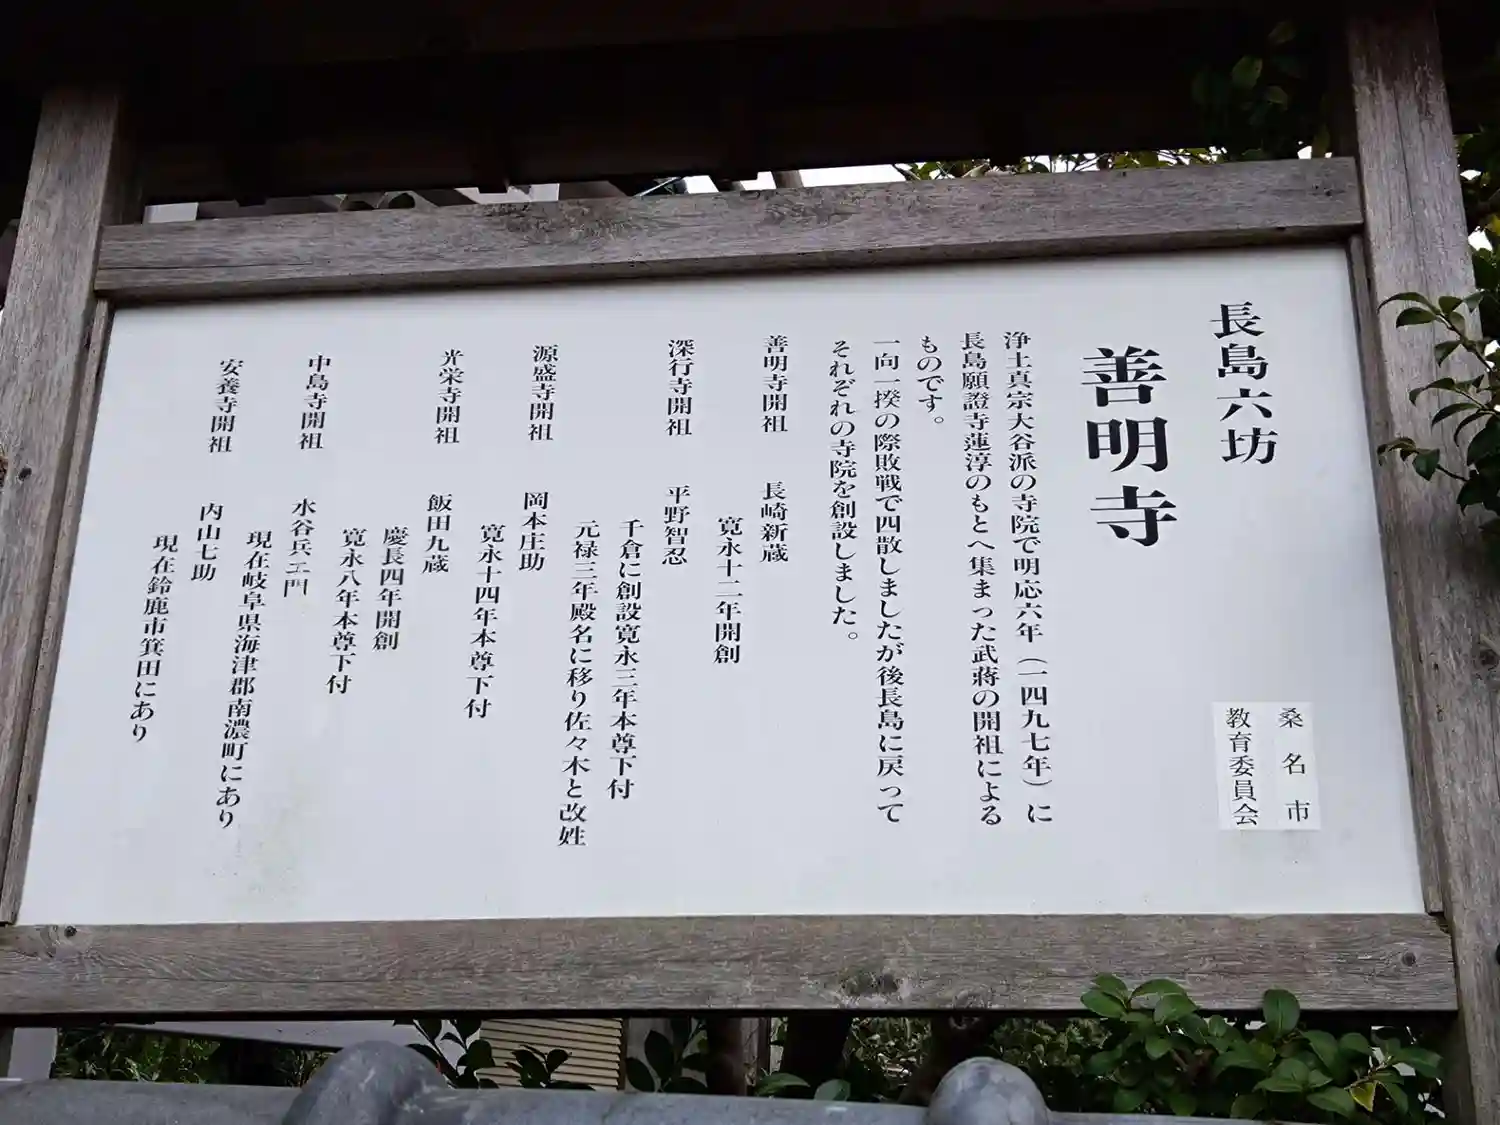 長島六坊
善明寺
桑名市
教育委員会
浄土真宗大谷派の寺院で明応六年(一四九七年)に
長島願證寺蓮淳のもとへ集まった武蒋の開祖による
ものです。
一向一揆の際敗戦で四散しましたが後長島に戻って
それぞれの寺院を創設しました。
善明寺開祖 長崎新蔵
寛永十二年開創
深行寺開祖 平野智忍
千倉に創設寛永三年本尊下付
元禄三年殿名に移り佐々木と改姓
源盛寺開祖 岡本庄助
寛永十四年本尊下付
光栄寺開祖 飯田九蔵
慶長四年開創
寛永八年本尊下付
中島寺開祖 水谷兵エ門
現在岐阜県海津郡南濃町にあり
安養寺開祖 内山七助
現在鈴鹿市箕田にあり